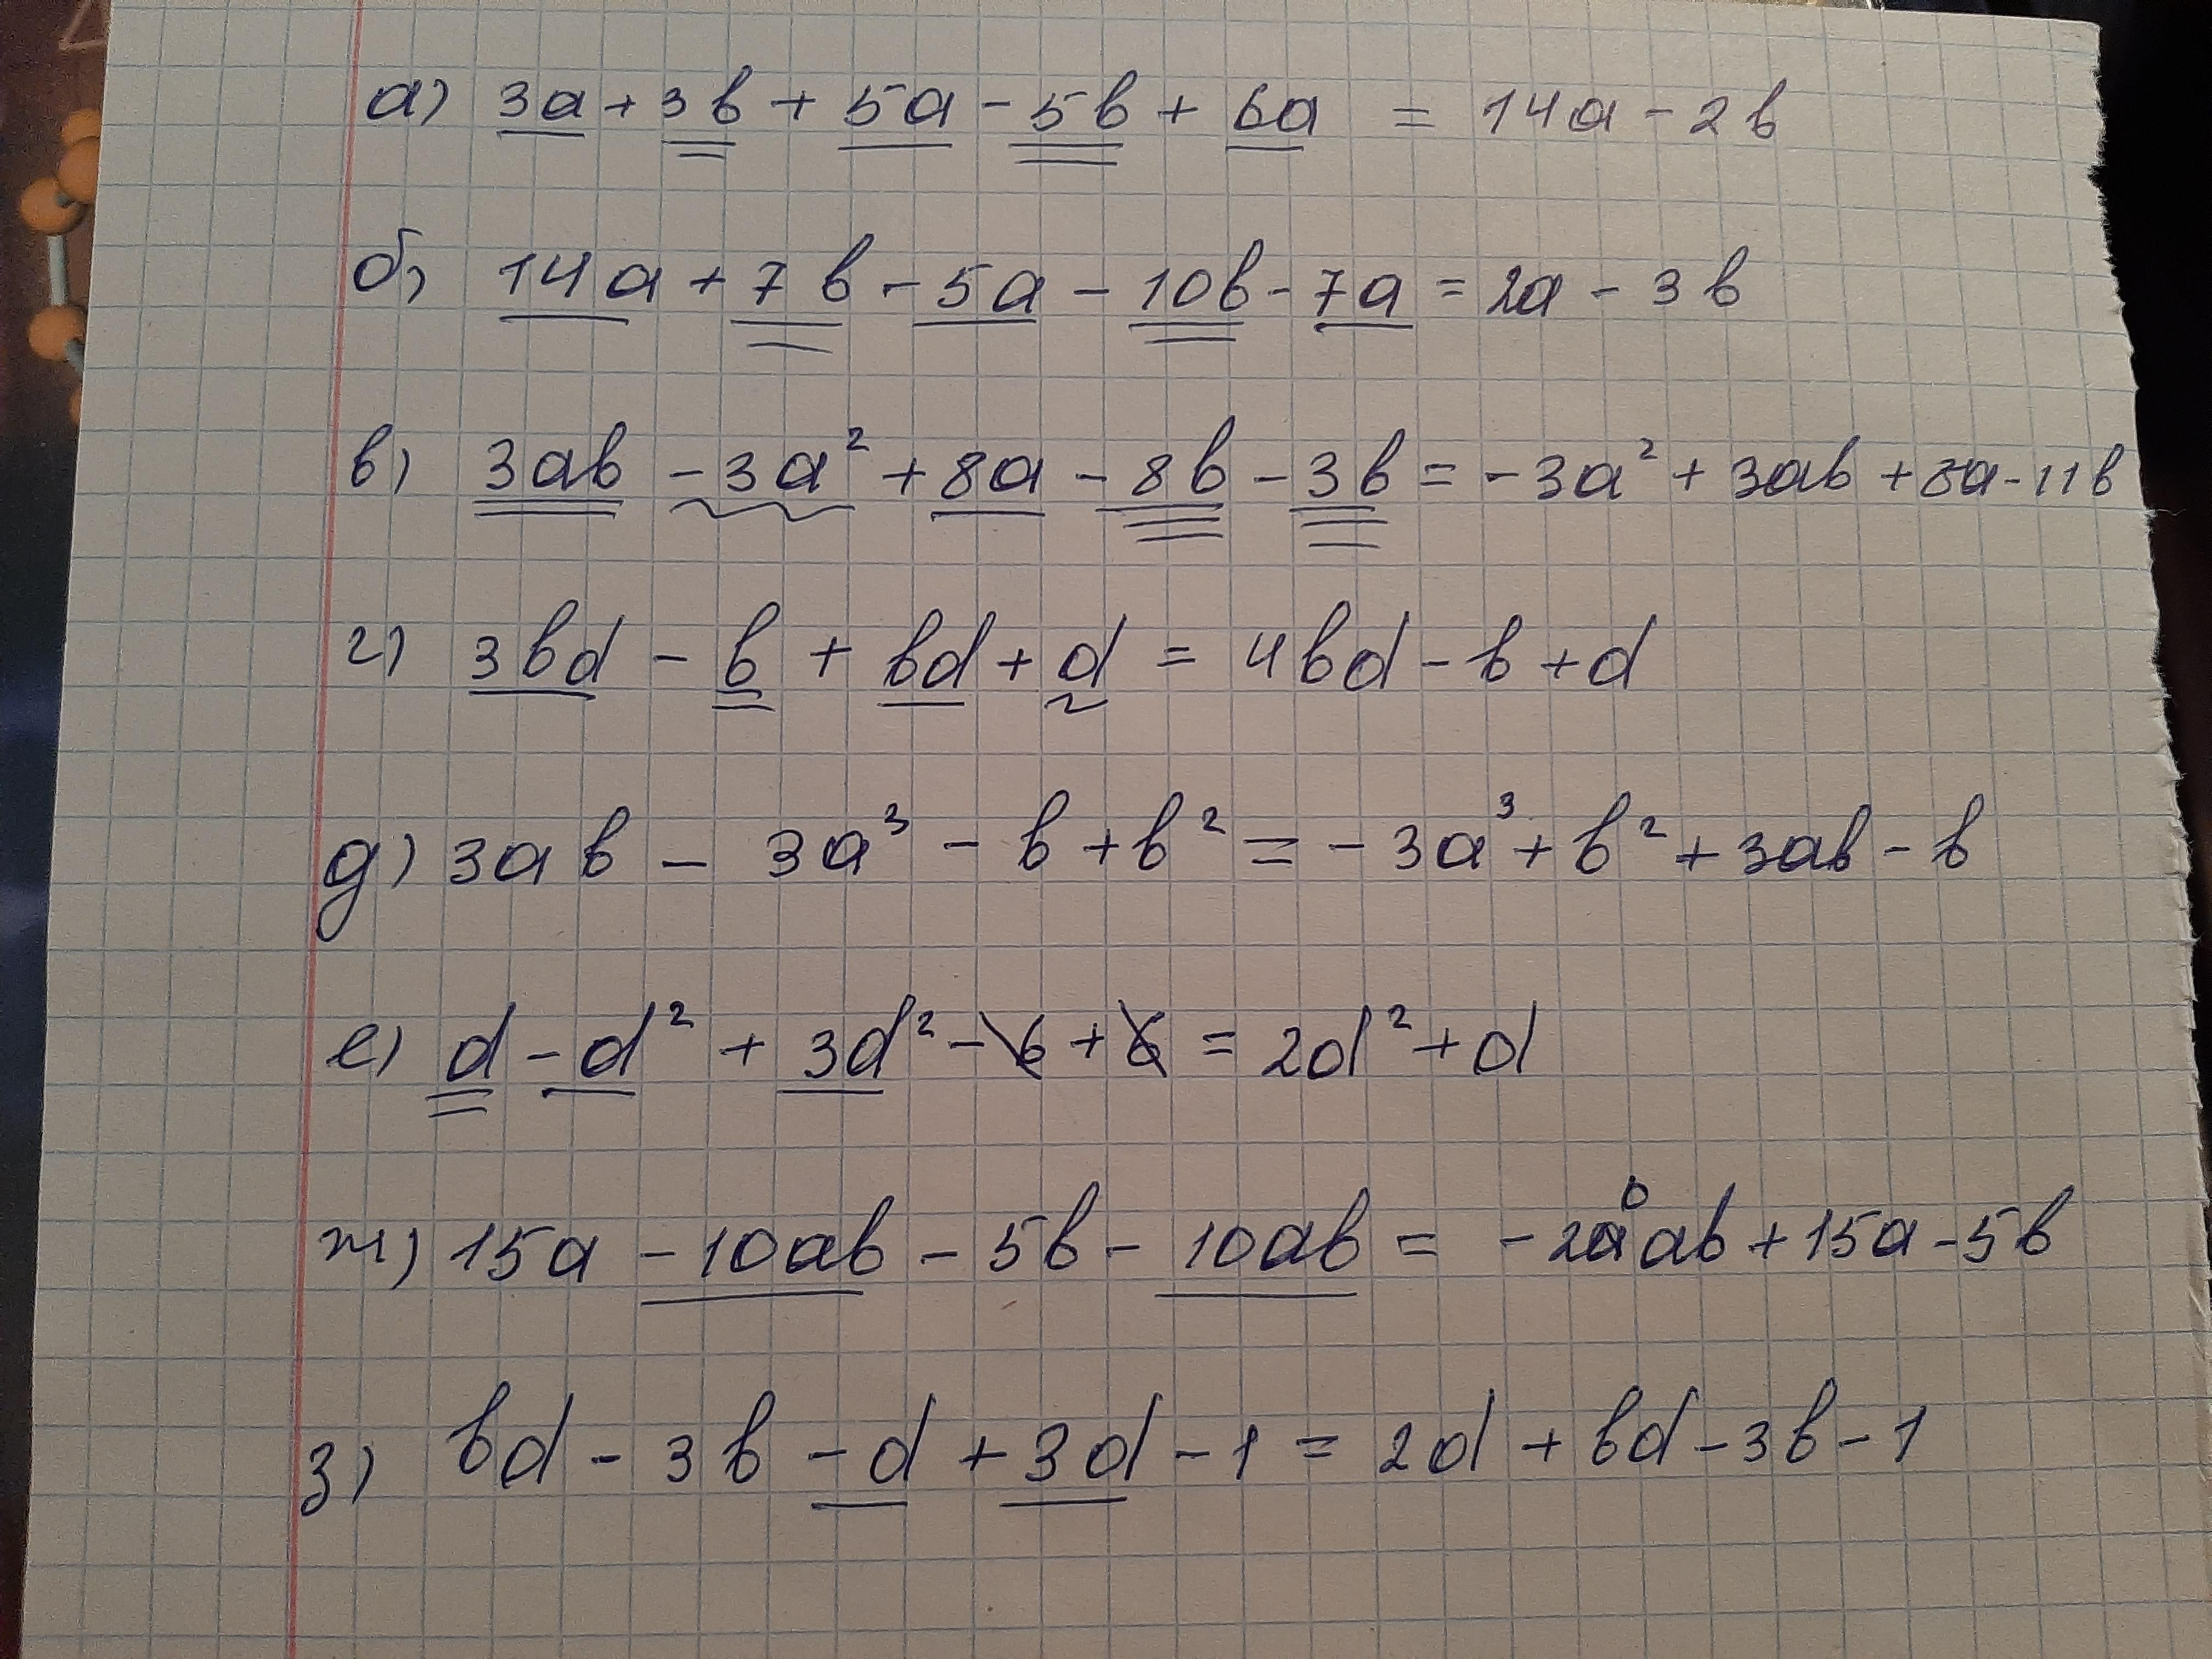 а) 3a + 3b + 5a - 5b + 6a = 14a - 2b
б) 14a + 7b - 5a - 10b - 7a = 2a - 3b
в) 3ab - 3a² + 8a - 8b - 3b = - 3a² + 3ab + 8a - 11b
г) 3bd - b + bd + d = 4bd - b + d
д) 3ab - 3a³ - b + b² = - 3a³ + b² + 3ab - b
е) d - d² + 3d² - 6 + 6 = 2d² + d
ж) 15a - 10ab - 5b - 10ab = - 20ab + 15a - 5b
з) bd - 3b - d + 3d - 1 = 2d + bd - 3b - 1